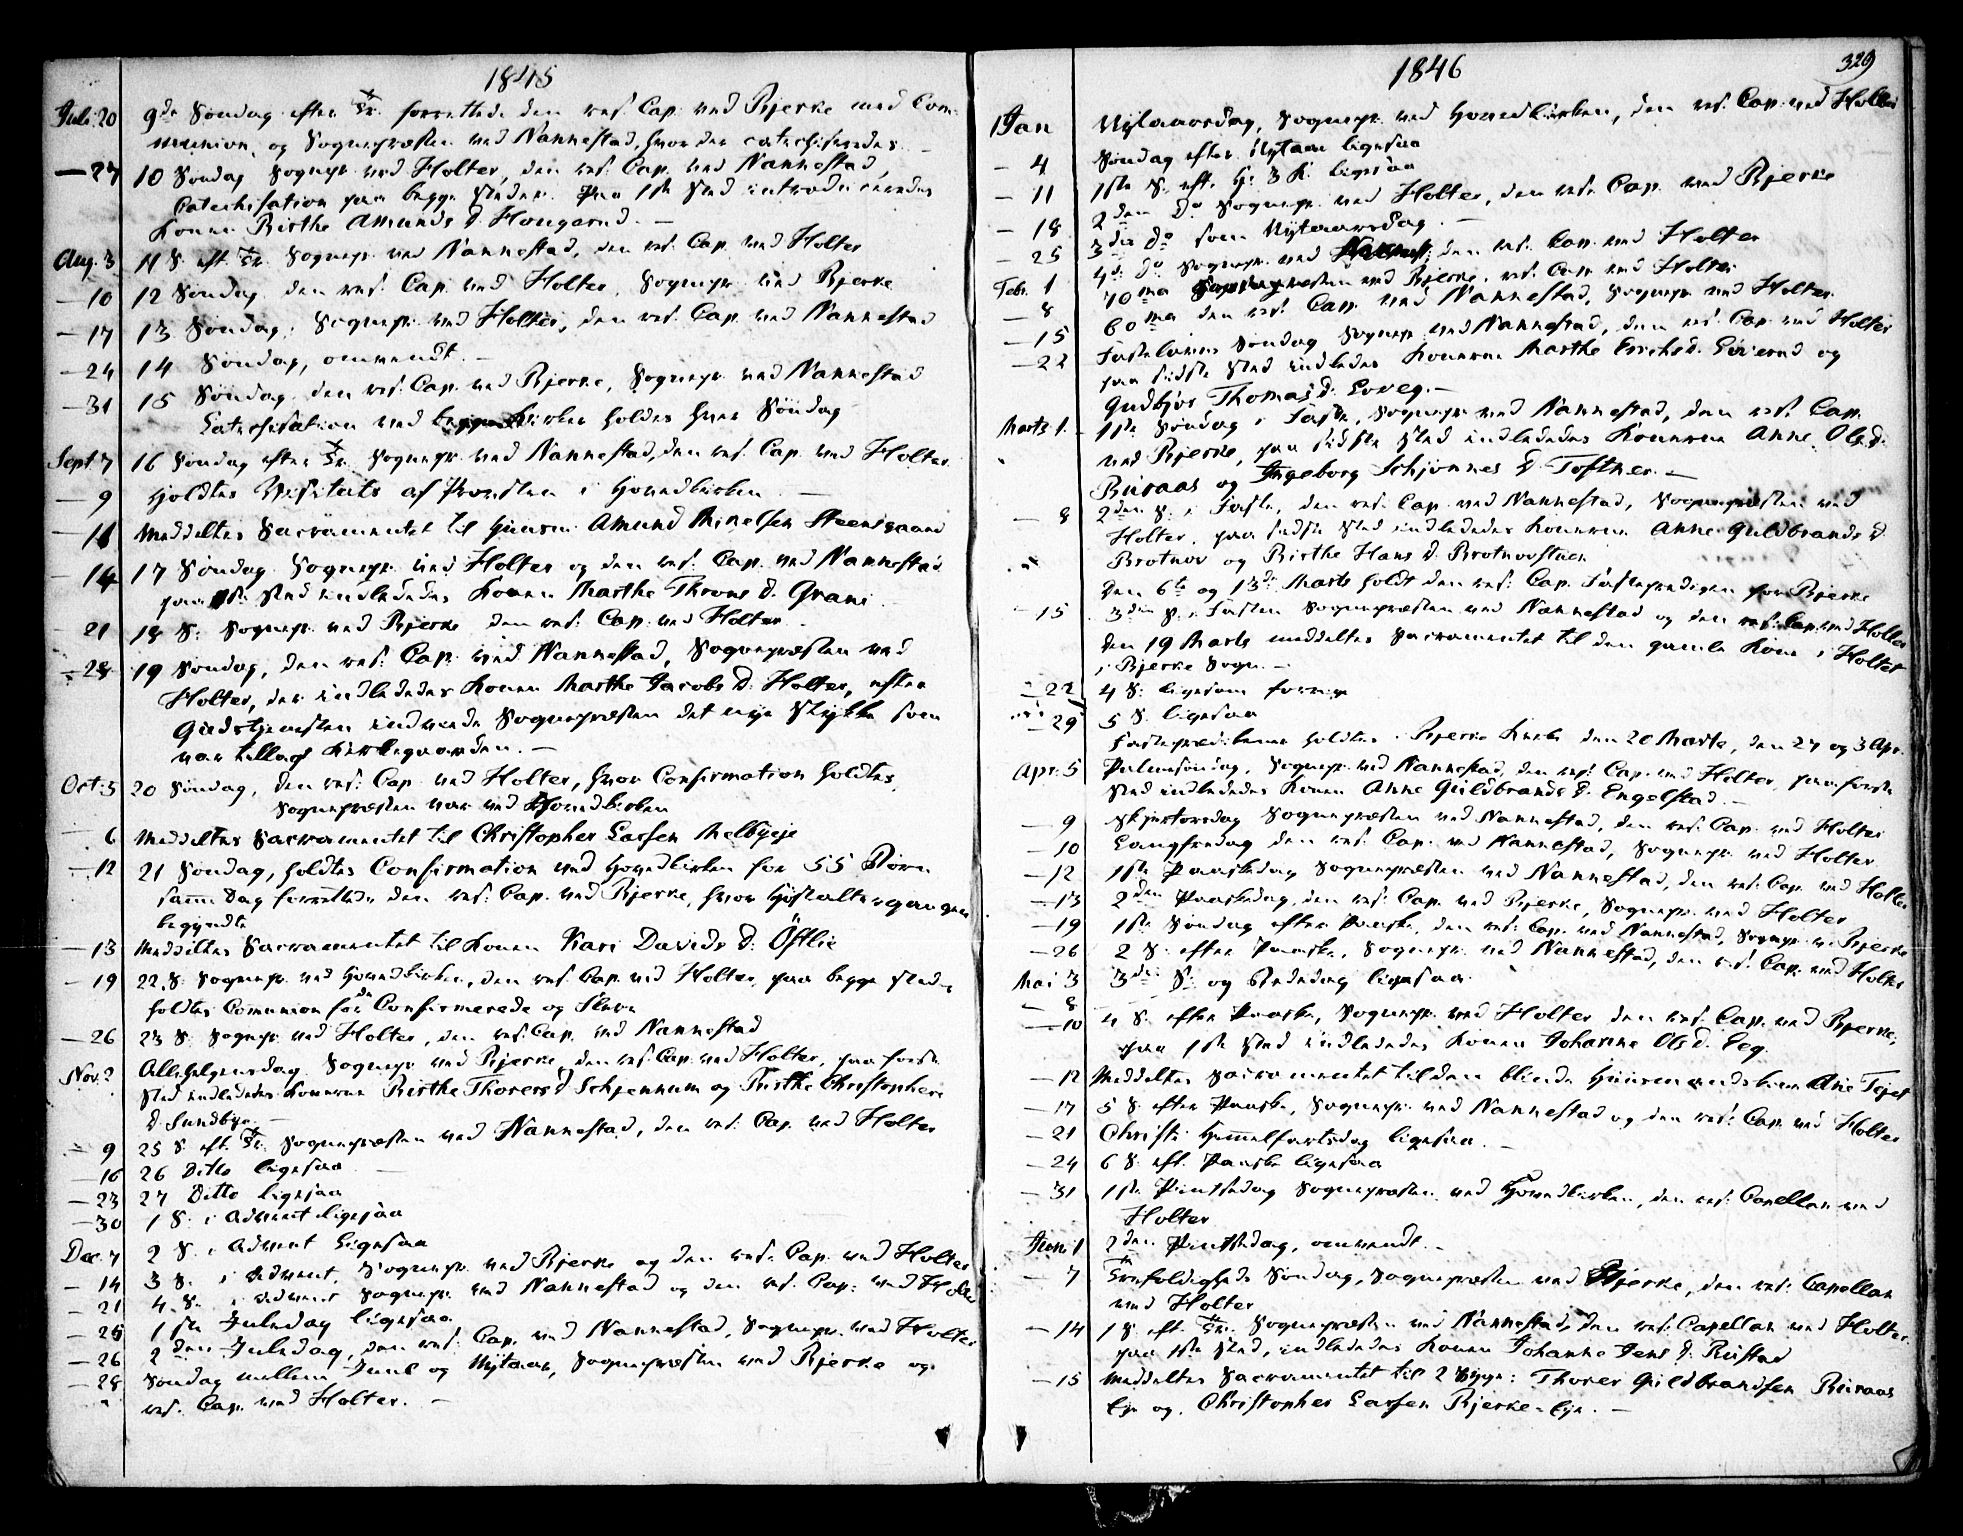 1845
Juli 20 9de Søndag efter Tr. forrettede den res. Cap. ved Bjerke med Com-
munion, og Sognepræsten ved Nannestad, hvor der catechiseredes. —
— 27 10 Søndag Sognepr. ved Holter, den res. Cap. ved Nannestad,
Catechisation paa begge Steder. Paa 1ste Sted introduceredes
Konen Birthe Amunds D. Hougerud. —
Aug. 3 11 S. eft. Tr. Sognepr. ved Nannestad, den res. Cap. ved Holter
— 10 12 Søndag den res. Cap. ved Holter, Sognepr. ved Bjerke
— 17 13 Søndag, Sognepr. ved Holter, den res. Cap. ved Nannestad
— 24 14 Søndag, omvendt. —
— 31 15 Søndag den res. Cap. ved Bjerke, Sognepr. ved Nannestad
Catechisation ved begge Kirker holdes hver Søndag
Sept. 7 16 Søndag efter Tr. Sognepr. ved Nannestad, den res. Cap. ved Holter
— 9 holdtes Visitats af Provsten i Hovedkirken —
— 11 Meddeltes Sacramentet til Huusm. Amund Mikelsen Steensgaard
— 14 17 Søndag Sognepr. ved Holter og den res. Cap. ved Nannestad
paa 1ste Sted indledes Konen Marthe Throns D. Grani
21 18 S. Sognepr. ved Bjerke den res. Cap. ved Holter
— 28 19 Søndag, den res. Cap. ved Nannestad, Sognepræsten ved
Holter, der indledes Konen Marthe Jacobs D. Holter, efter
Gudstjenesten indviede Sognepræsten det nye Stykke som
var tillagt Kirkegaarden. —
Oct. 5 20 Søndag, den res. Cap. ved Holter, hvor Confirmation holdtes,
Sognepræsten var ved Hovedkirken
6 Meddeltes Sacramentet til Christopher Larsen Melbyeje
— 12 21 Søndag, holdtes Confirmation ved Hovedkirken for 55 Børn
samme Dag forrettede den res. Cap. ved Bjerke, hvor Høstaltergangen
begyndte
— 13 Meddeltes Sacramentet til Konen Kari Davids D. Östlie
— 19 22. S. Sognepr. ved Hovedkirken, den res. Cap. ved Holter, paa begge Steder
holdtes Communion for de Confirmerede og Flere
— 26 23 S. Sognepr. ved Holter, den res. Cap. ved Nannestad
Nov. 2 Allehelgensdag Sognepr. ved Bjerke, den res. Cap. ved Holter, paa første
Sted indledes Konerne Birthe Thorers D. Schjennum og Birthe Christophers
D. Sundbye. —
— 9 25 S. eft. Tr. Sognepræsten ved Nannestad, den res. Cap. ved Holter
— 16 26 Ditto ligesaa —
— 23 27 Ditto ligesaa
— 30 1 S. i Advent ligesaa
Dec. 7 2 S. i Advent ligesaa
— 14 3 S. i Advent, Sognepr. ved Bjerke og den res. Cap. ved Holter
— 21 4. S. i Advent Sognepr. ved Nannestad og den res. Cap. ved Holter
— 25 1ste Juledag ligesaa
— 26 2den Juledag, den res. Cap. ved Nannestad, Sognepr. ved Holter
— 28 Søndag mellem Juul og Nytaar, Sognepræsten ved Bjerke og
res. Cap. ved Holter. —
1846
329
1 Jan Nytaarsdag, Sognepr. ved Hovedkirken, den res. Cap. ved Holter
— 4 Søndag efter Nytaar ligesaa
— 11 1ste S. eft. H. 3 K. ligesaa
— 18 2den Do Sognepr. ved Holter, den res. Cap. ved Bjerke
— 25 3die Do som Nytaarsdag —
Febr. 1 4de Do Sognepr. ved den res. Cap. ved Holter
— 8 70ma Sognepræsten ved Bjerke, res. Cap. ved Holter
— 15 60ma den res. Cap. ved Nannestad, Sognepr. ved Holter
— 22 Fastelavns Søndag Sognepr. ved Nannestad, den res. Cap. ved Holter
paa sidste Sted indledes Konerne Marthe Erichs D. og
Gudbjør Thomas D. Loveg. —
Marts 1. 1ste Søndag i Faste, Sognepr. ved Nannestad, den res. Cap.
ved Bjerke, paa sidste Sted indledes Konerne Anne Ols D.
Buraas og Ingeborg Schjønnes D. Toftner. —
— 8 2den S. i Faste, den res. Cap. ved Nannestad, Sognepræsten ved
Holter, paa sidste Sted indledes Konerne Anne Guldbrands D
Brotnov og Birthe Hans D. Brotnovstuen
Den 6te og 13de Marts holdt den res. Cap. Fasteprædiken paa Bjerke
— 15 3die S. i Fasten Sognepræsten ved Nannestad og den res. Cap. ved Holter
Den 19 Marts meddeltes Sacramentet til den gamle Kone i Holtet
i Bjerke Sogn. —
— 22 4 S. ligesom forrige
— 29 5 S. ligesaa
Fasteprædikener holdtes i Bjerke Kirke den 20 Marts, den 27 og 3 Apr.
Apr. 5 Palmesøndag, Sognepr. ved Nannestad, den res. Cap. ved Holter, paa første
Sted indledes Konen Anne Guldbrands D. Engelstad. —
— 9 Skjertorsdag Sognepræsten ved Nannestad, den res. Cap. ved Holter
— 10 Langfredag den res. Cap. ved Nannestad, Sognepr. ved Holter
— 12 1ste Paaskedag Sognepræsten ved Nannestad, den res. Cap. ved Holter
— 13 2den Paaskedag, den res. Cap. ved Bjerke, Sognepr. ved Holter
— 19 1ste Søndag efter Paaske, den res. Cap. ved Nannestad, Sognepr. v. Bjerke
— 26 2 S. efter Paaske, Sognepr. ved Nannestad, den res. Cap. ved Holter
Mai 3 3die S. og Bededag ligesaa
— 8
— 10 4 S. efter Paaske, Sognepr. ved Holter den res. Cap. ved Bjerke,
paa 1ste Sted indledes Konen Johanne Ols D. Eeg.
— 12 Meddeltes Sacramentet til den blinde Huusmandskone Ane Tejet
— 17 5 S. efter Paaske, Sognepr. ved Nannestad og den res. Cap. ved Holter
— 21 Christi Himmelfartsdag ligesaa —
— 24 6 S. eft. Paaske ligesaa
— 31 1ste Pintsedag Sognepræsten ved Hovedkirken, den res. Capellan ved
Holter
Juni 1 2den Pintsedag, omvendt. —
— 7 Trefoldigheds Søndag, Sognepræsten ved Bjerke, den res. Capellan
ved Holter
— 14 1 S. eft. Tr. Sognepræsten ved Nannestad, den res. Capellan ved Holter.
paa 1ste Sted, indledes Konen Johanne Jens D. Rustad
— 15 Meddeltes Sacramentet til 2 Syge: Thorer Guldbrandsen Buraas
Eje og Christopher Larsen Bjerke-Eje. —